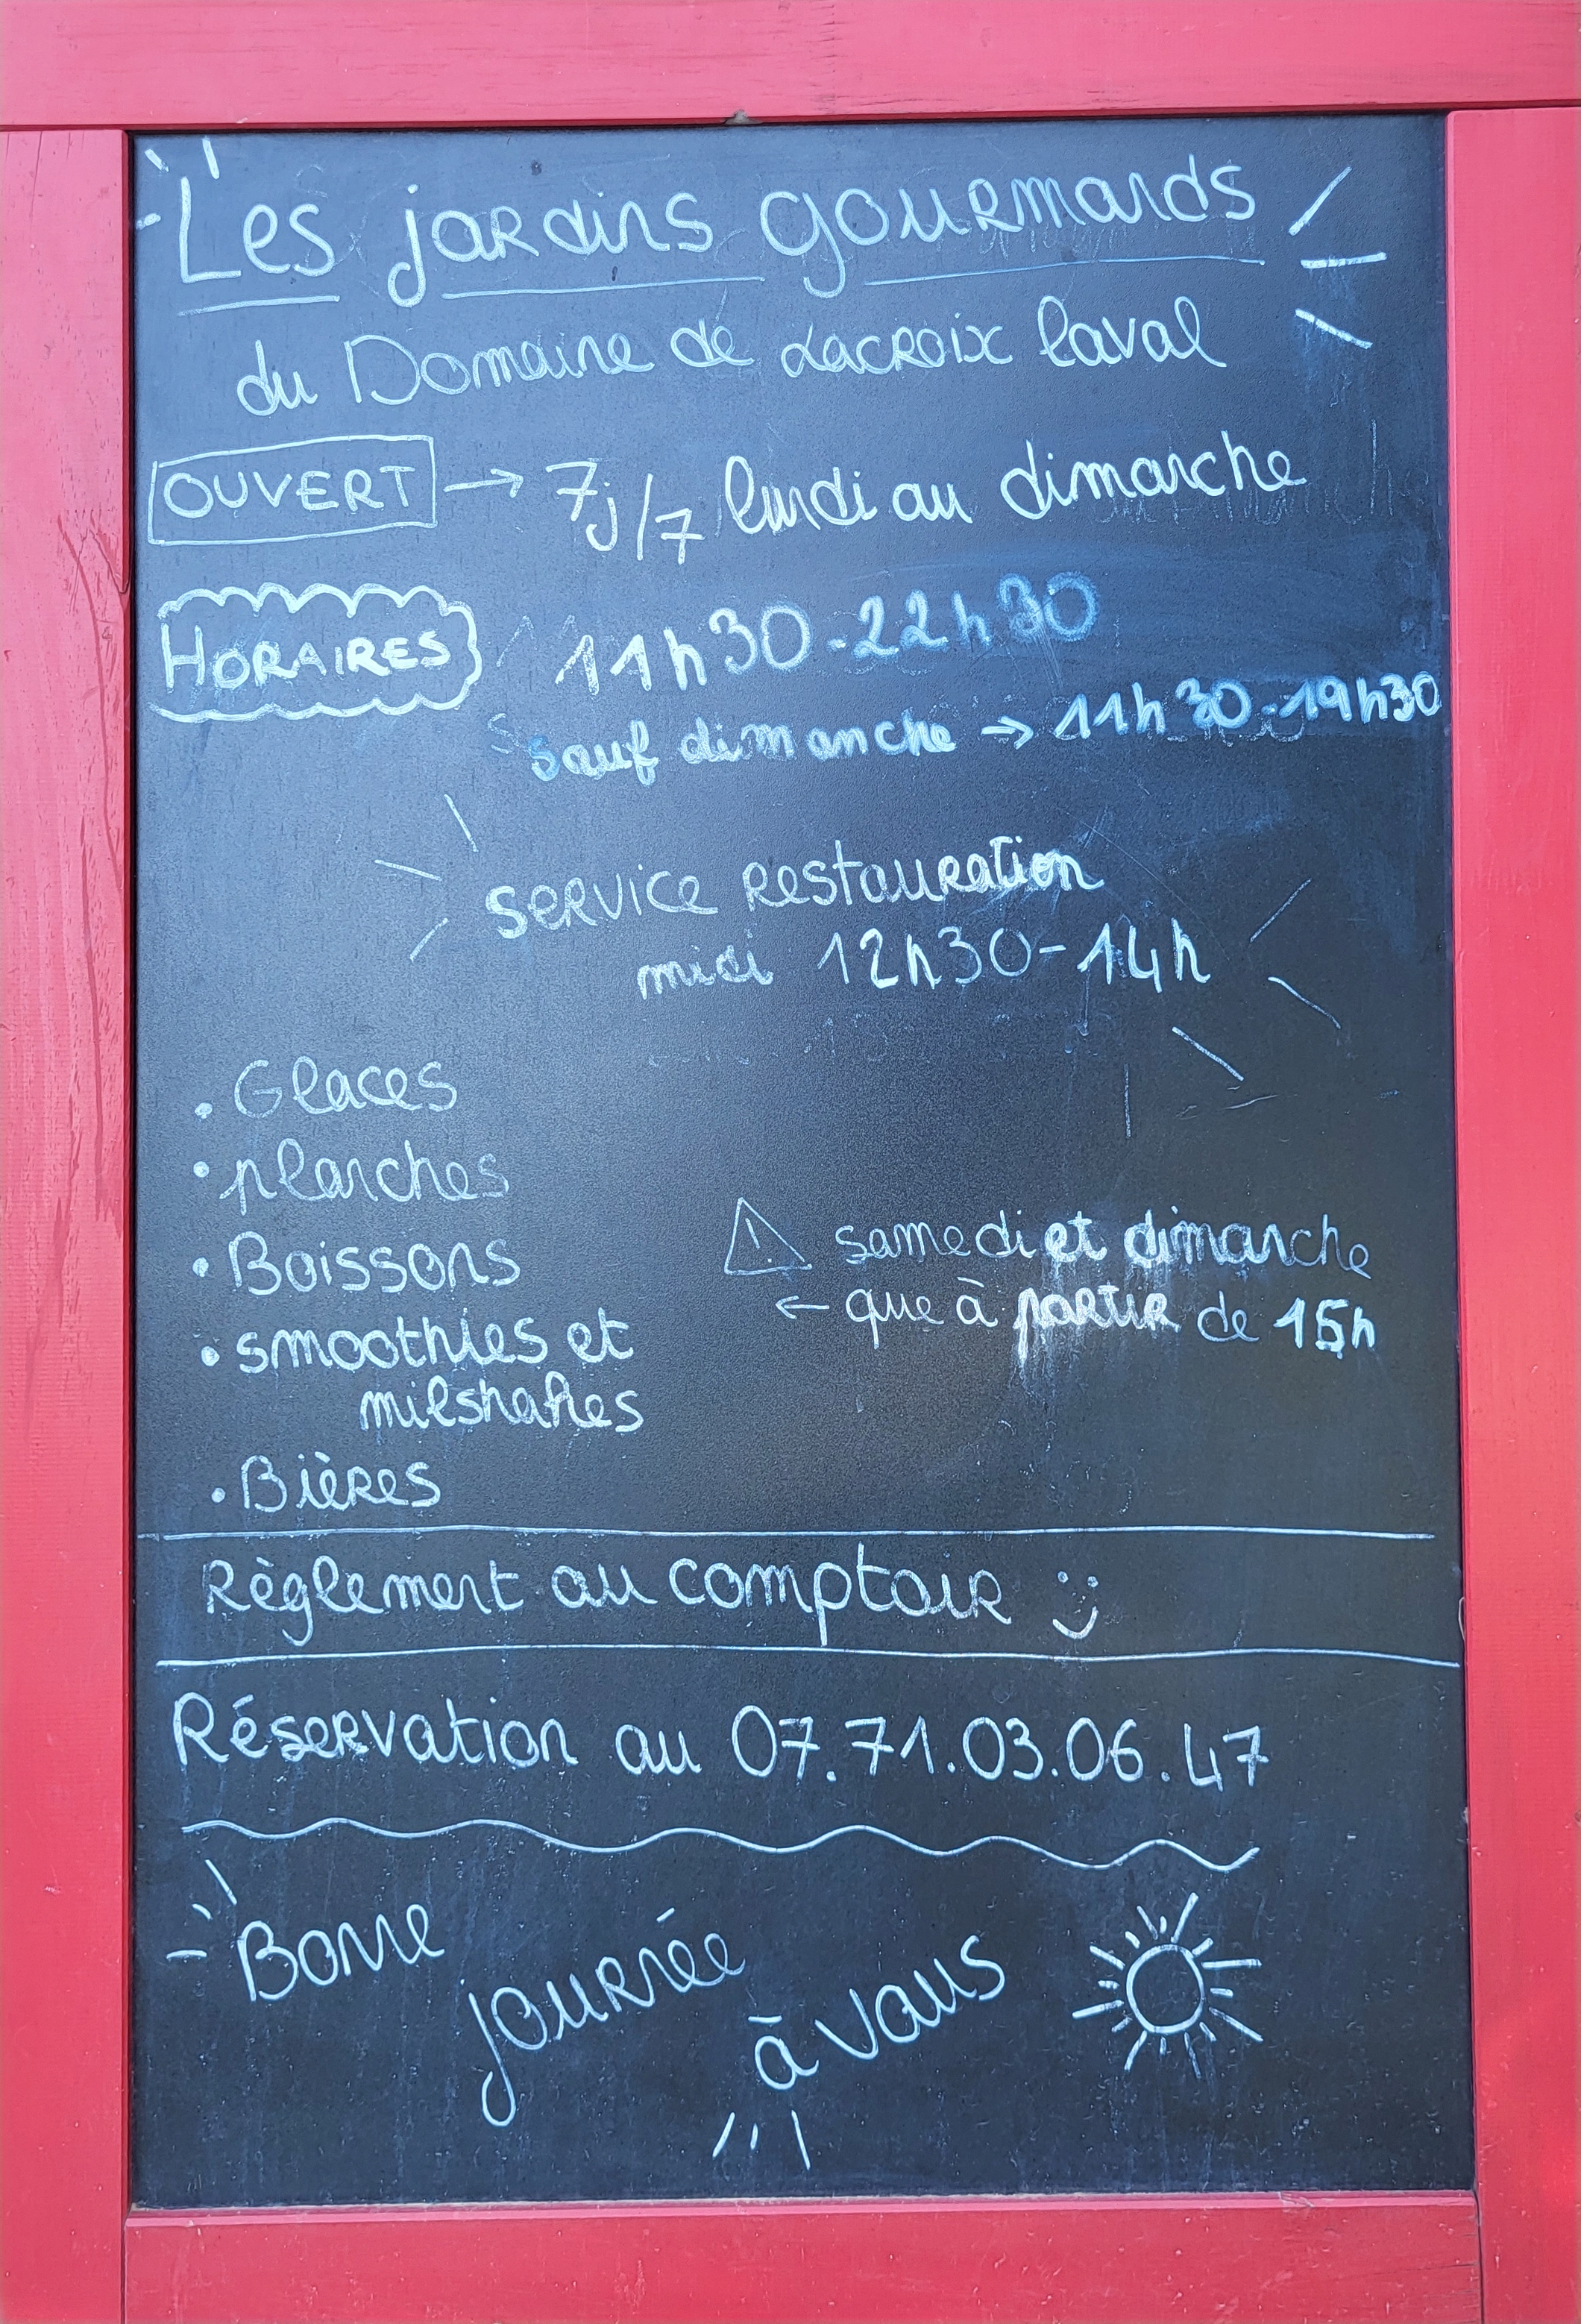 Les jardins gourmands
du Domaine de Lacroix Laval
OUVERT → 7j/7 lundi au dimanche
HORAIRES 11h30-22h30
sauf dimanche → 11h30-19h30
service restauration
midi 12h30-14h
• Glaces
• planches
• Boissons
⚠ samedi et dimanche
• smoothies et
← que à partir de 15h
milshakes
• Bières
Règlement au comptoir :)
Réservation au 07.71.03.06.47
Bonne
journée
à vous